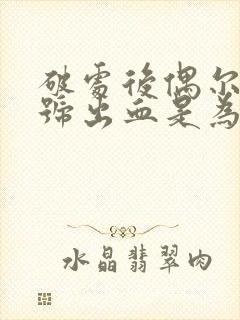 破處後偶尔
號出血是為
水晶翡翠肉